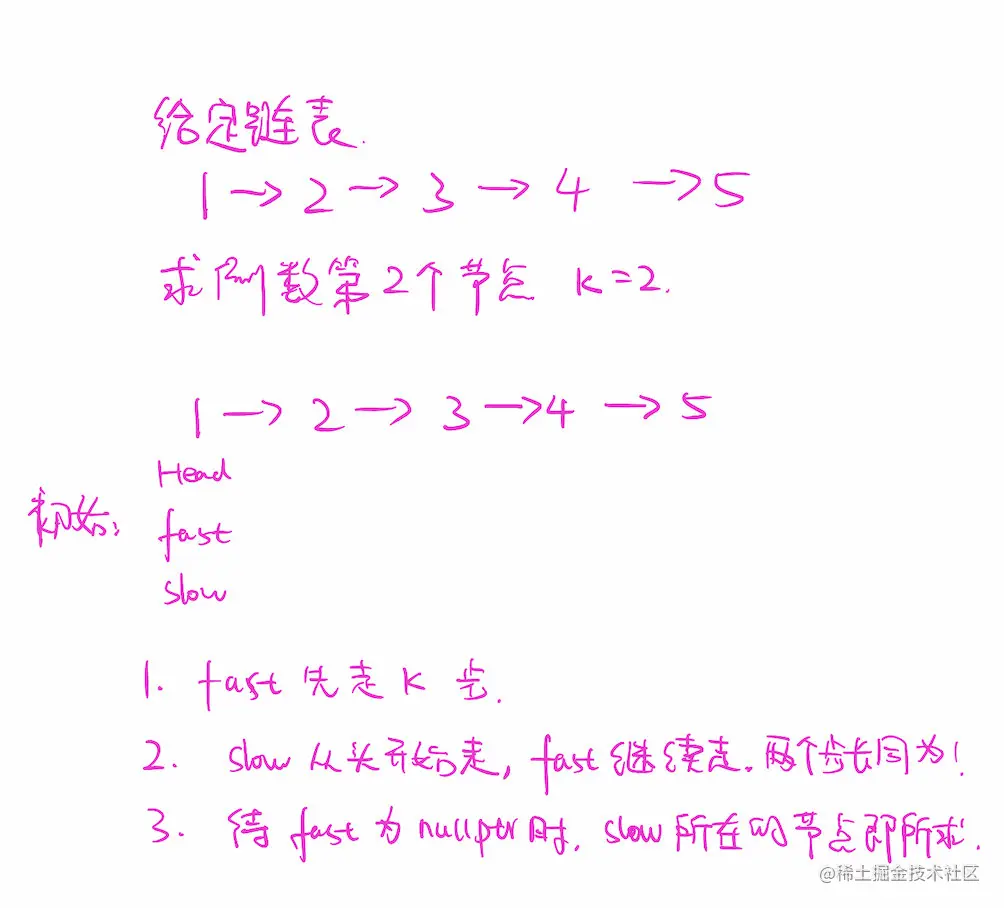 给定链表.
1 → 2 → 3 → 4 → 5
求倒数第2个节点 K=2.
1 → 2 → 3 → 4 → 5
Head
初始: fast
slow
1. fast 先走 K 步.
2. slow 从头开始走, fast 继续走. 两个步长同为1
3. 待 fast 为 nullptr 时, slow 所在的节点即所求.
@稀土掘金技术社区